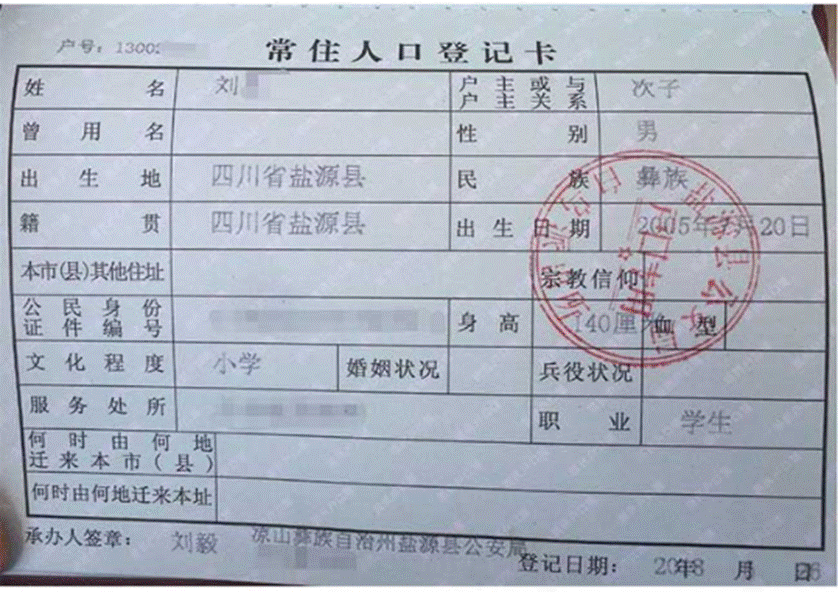 户号：13002
常住人口登记卡
姓名 刘 户主或与户主关系 次子
曾用名 性别 男
出生地 四川省盐源县 民族 彝族
籍贯 四川省盐源县 出生日期 2005年 月20日
本市(县)其他住址 宗教信仰
公民身份证件编号 身高 140厘米 血型
文化程度 小学 婚姻状况 兵役状况
服务处所 职业 学生
何时由何地迁来本市(县)
何时由何地迁来本址
承办人签章： 刘毅 凉山彝族自治州盐源县公安局 登记日期： 年 月 日
户口专用